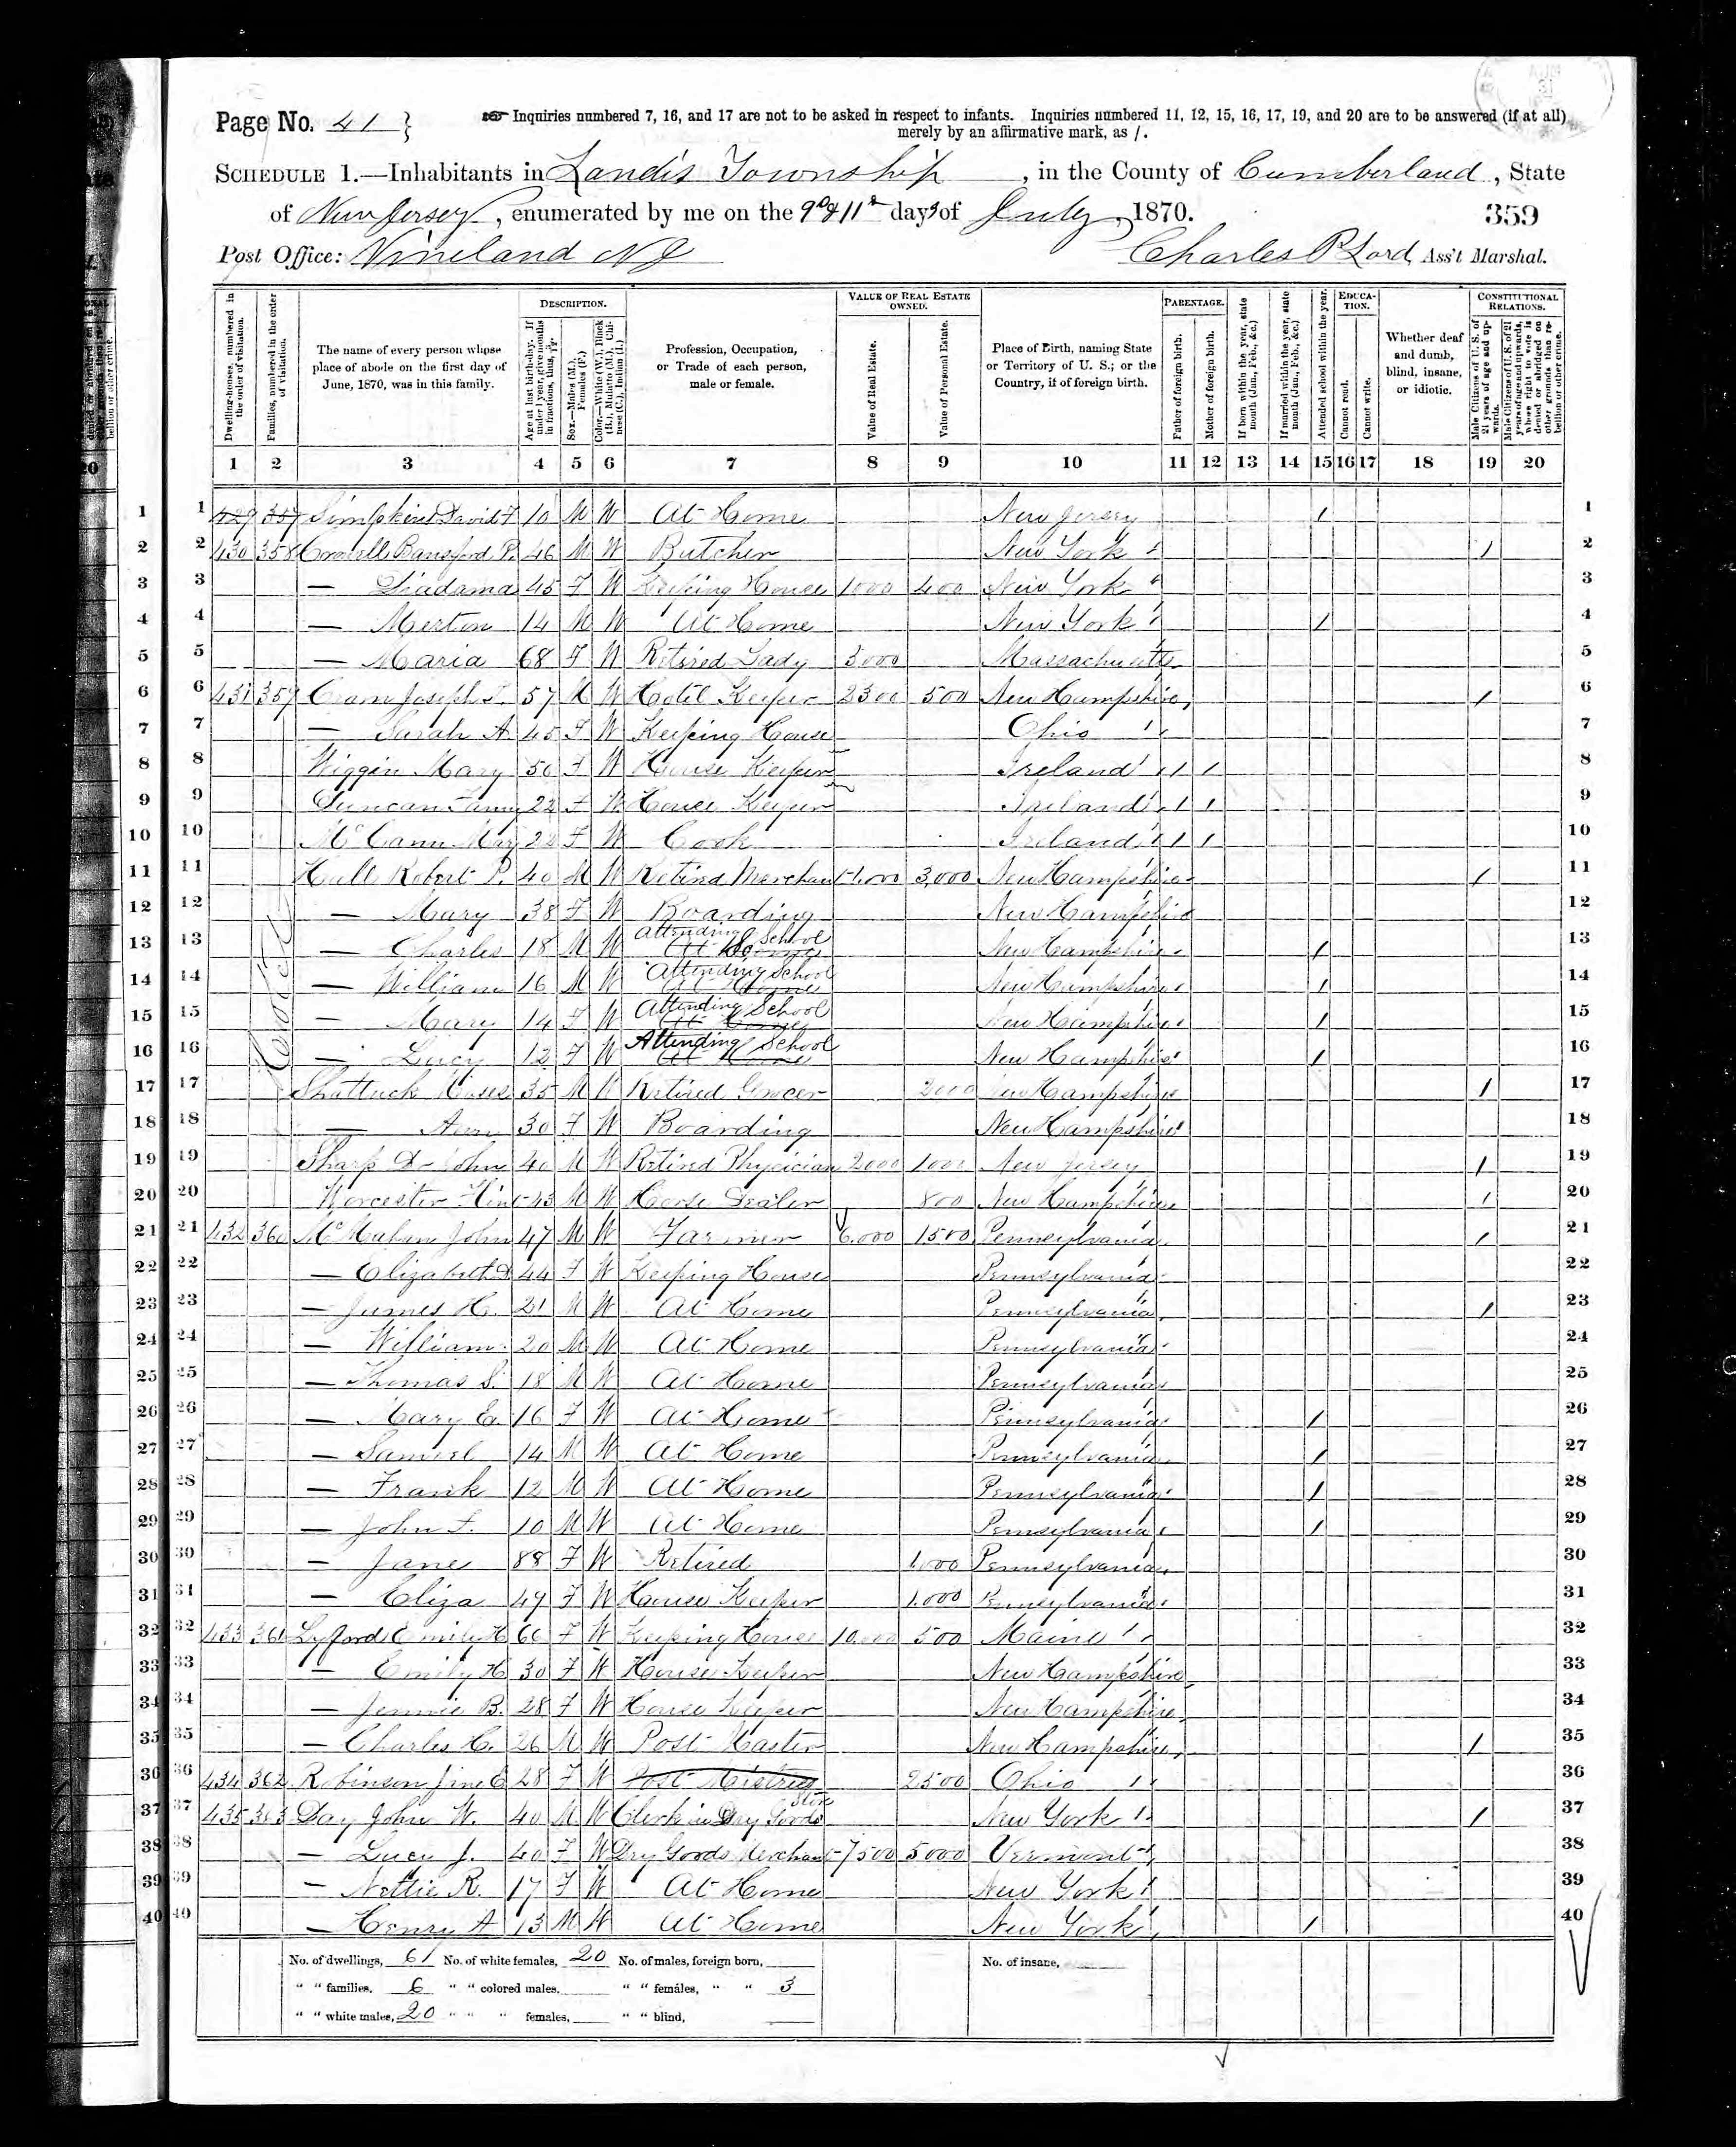 Page No. 41
Inquiries numbered 7, 16, and 17 are not to be asked in respect to infants. Inquiries numbered 11, 12, 15, 16, 17, 19, and 20 are to be answered (if at all)
merely by an affirmative mark, as /.
SCHEDULE 1.—Inhabitants in Landis Township, in the County of Cumberland, State
of New Jersey, enumerated by me on the 9th & 11th days of July, 1870.
359
Post Office: Vineland NJ
Charles P Lord, Ass't Marshal.
Dwelling-houses, numbered in the order of visitation.
Families, numbered in the order of visitation.
The name of every person whose place of abode on the first day of June, 1870, was in this family.
DESCRIPTION.
Age at last birth-day. If under 1 year, give months in fractions, thus,
Sex.—Males (M.), Females (F.)
Color.—White (W.), Black (B.), Mulatto (M.), Chinese (C.), Indian (I.)
Profession, Occupation, or Trade of each person, male or female.
VALUE OF REAL ESTATE OWNED.
Value of Real Estate.
Value of Personal Estate.
Place of Birth, naming State or Territory of U. S.; or the Country, if of foreign birth.
PARENTAGE.
Father of foreign birth.
Mother of foreign birth.
If born within the year, state month (Jan., Feb., &c.)
If married within the year, state month (Jan., Feb., &c.)
Attended school within the year.
EDUCATION.
Cannot read.
Cannot write.
Whether deaf and dumb, blind, insane, or idiotic.
CONSTITUTIONAL RELATIONS.
Male Citizens of U. S. of 21 years of age and upwards.
Male Citizens of U. S. of 21 years of age and upwards, whose right to vote is denied or abridged on other grounds than rebellion or other crime.
1 2 3 4 5 6 7 8 9 10 11 12 13 14 15 16 17 18 19 20
1 429 357 Simpkins David F 10 M W At Home New Jersey / 1
2 430 358 P. 46 M W Butcher New York / 2
3 — 45 F W Keeping House 1000 400 New York 3
4 — Merton 14 M W At Home New York / 4
5 — Maria 68 F W Retired Lady 3000 Massachusetts 5
6 431 359 Cram Joseph 57 M W Hotel Keeper 2300 500 New Hampshire / 6
7 — Sarah A. 45 F W Keeping House Ohio 7
8 Wiggin Mary 50 F W House Keeper Ireland / / 8
9 Duncan Fanny 22 F W House Keeper Ireland / / 9
10 McCann Mary 22 F W Cook Ireland / / 10
11 Hall Robert P. 40 M W Retired Merchant 3,000 New Hampshire / 11
12 — Mary 38 F W Boarding New Hampshire 12
13 — Charles 18 M W Attending School At Home New Hampshire / 13
14 — William 16 M W Attending School At Home New Hampshire / 14
15 — Mary 14 F W Attending School At Home New Hampshire / 15
16 — Lucy 12 F W Attending School At Home New Hampshire / 16
17 Shattuck Moses 35 M W Retired Grocer 2000 New Hampshire / 17
18 — Ann 30 F W Boarding New Hampshire 18
19 Sharp Dr John 40 M W Retired Physician 2000 1000 New Jersey / 19
20 Worcester 43 M W Horse Dealer 800 New Hampshire / 20
21 432 360 McMahan John 47 M W Farmer 6.000 1500 Pennsylvania / 21
22 — Elizabeth D 44 F W Keeping House Pennsylvania 22
23 — James H. 21 M W At Home Pennsylvania / 23
24 — William 20 M W At Home Pennsylvania 24
25 — Thomas S. 18 M W At Home Pennsylvania 25
26 — Mary E. 16 F W At Home Pennsylvania / 26
27 — Samuel 14 M W At Home Pennsylvania / 27
28 — Frank 12 M W At Home Pennsylvania / 28
29 — John F. 10 M W At Home Pennsylvania / 29
30 — Jane 88 F W Retired 1.000 Pennsylvania 30
31 — Eliza 49 F W House Keeper 1.000 Pennsylvania 31
32 433 361 Lyford Emily H 66 F W Keeping House 10.000 500 Maine 32
33 — Emily H 30 F W House Keeper New Hampshire 33
34 — Jennie B. 28 F W House Keeper New Hampshire 34
35 — Charles C. 26 M W Post Master New Hampshire / 35
36 434 362 Robinson Jine E 28 F W Post Mistress 2500 Ohio 36
37 435 363 Day John W. 40 M W Clerk in Dry Goods Store New York / 37
38 — Lucy J. 40 F W Dry Goods Merchant 7500 5000 Vermont 38
39 — Nettie R. 17 F W At Home New York 39
40 — Henry A 13 M W At Home New York / 40
No. of dwellings, 6 No. of white females, 20 No. of males, foreign born, No. of insane,
" " families, 6 " " colored males, " " females, " " 3
" " white males, 20 " " " females, " " blind,